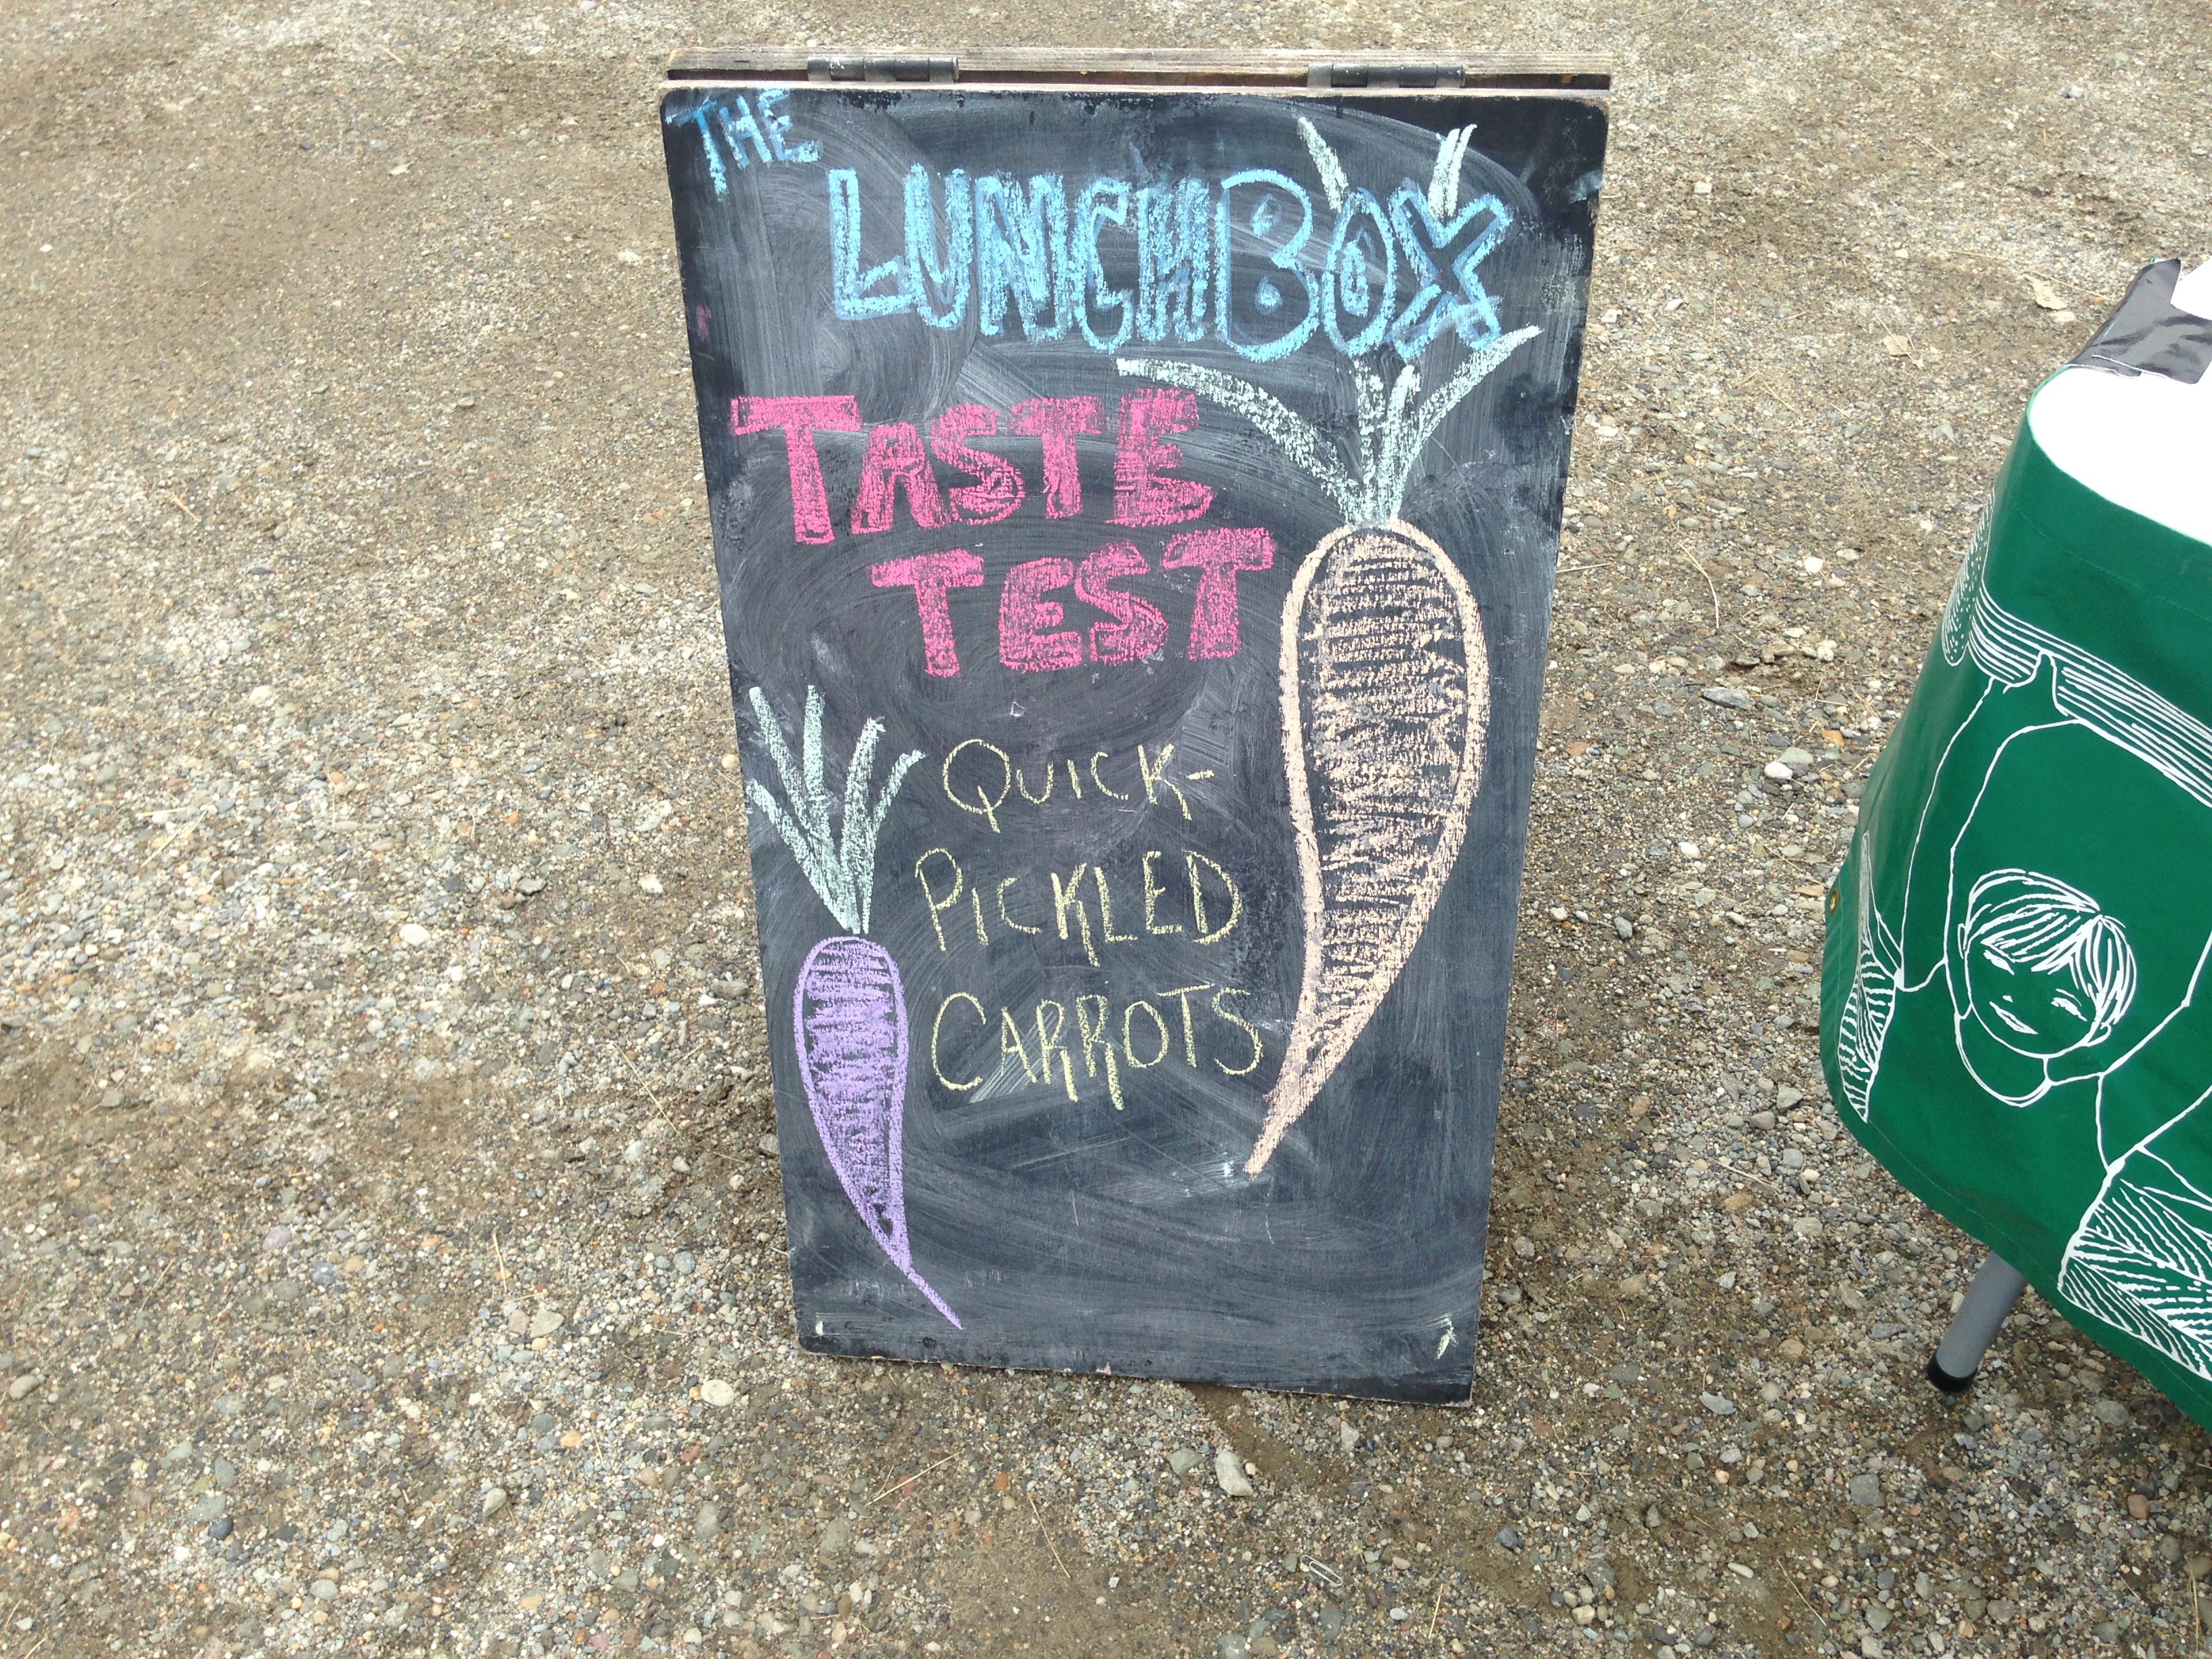 THE
LUNCHBOX
TASTE
TEST
QUICK-
PICKLED
CARROTS